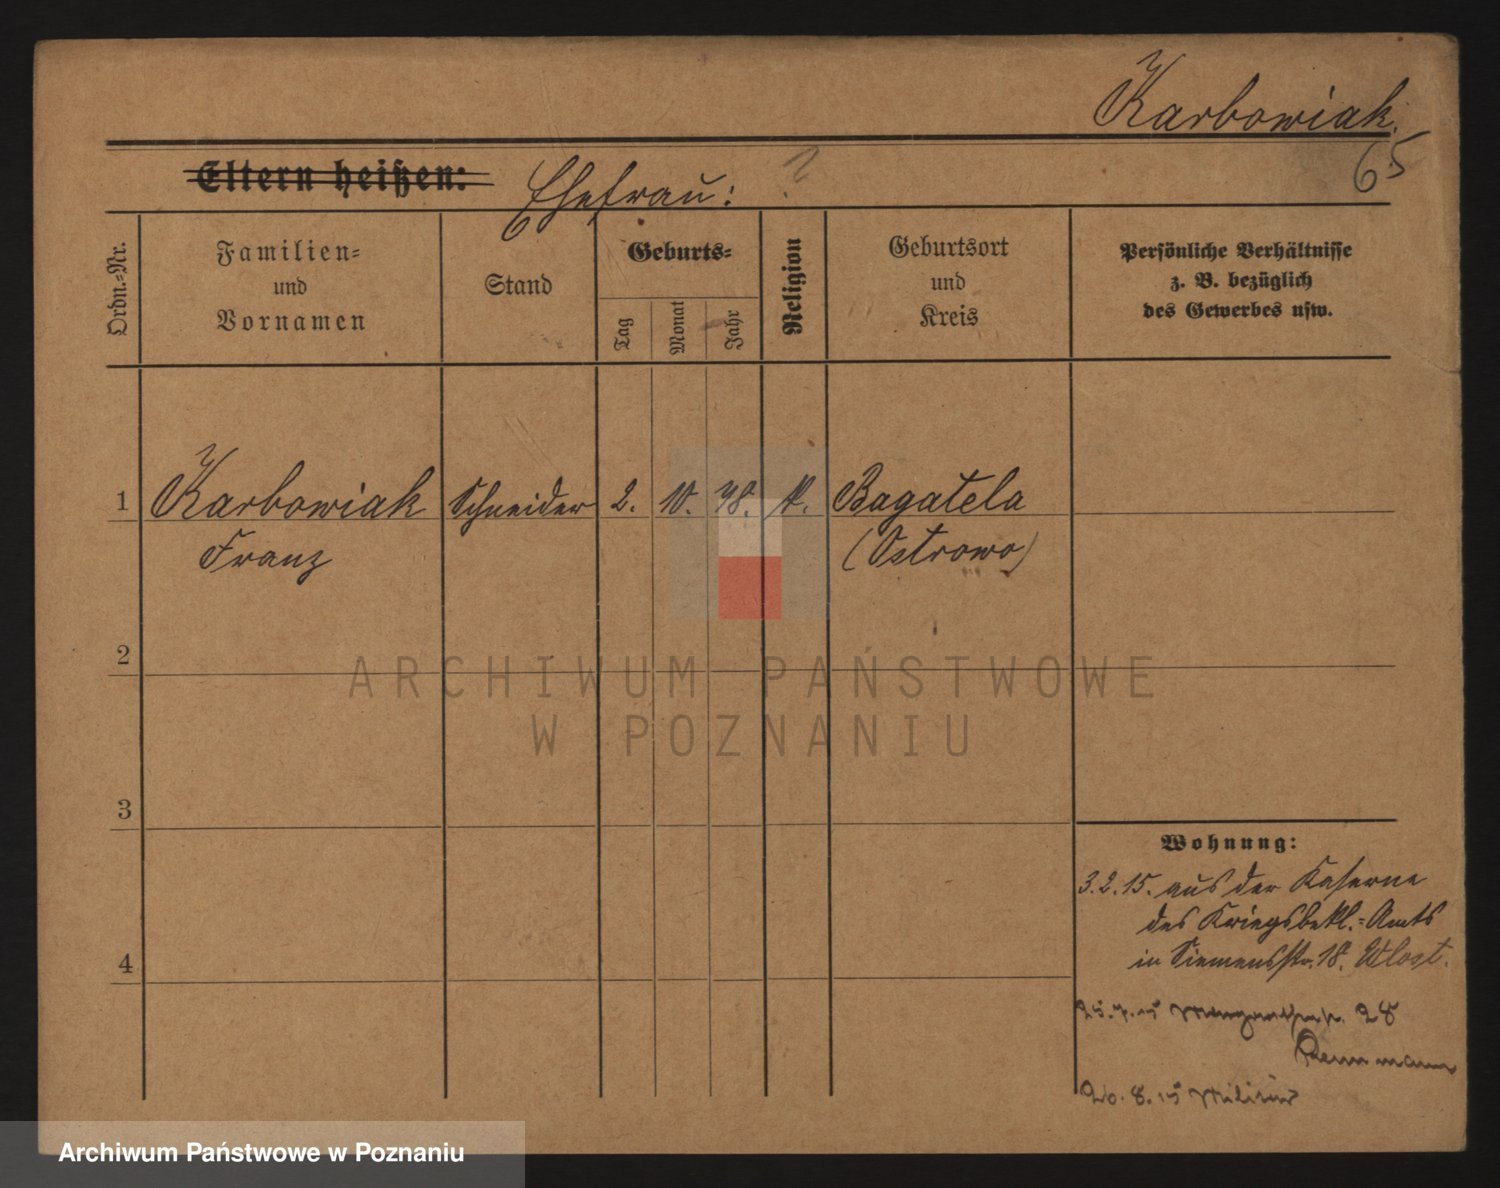 Karbowiak.
65
Eltern heißen: Ehefrau: ?
Ordn.-Nr.
Familien-
und
Vornamen
Stand
Geburts-
Tag
Monat
Jahr
Religion
Geburtsort
und
Kreis
Persönliche Verhältnisse
z. B. bezüglich
des Gewerbes usw.
1 Karbowiak Schneider 2. 10. 78. k. Bagatela
Franz (Ostrowo)
2
3
4
Wohnung:
3.2.15. aus der Kaserne
des Kriegsbekl.-Amts
in Siemensstr. 18.
25.7.15 28
20.8.15 Militär
ARCHIWUM PAŃSTWOWE
W POZNANIU
Archiwum Państwowe w Poznaniu